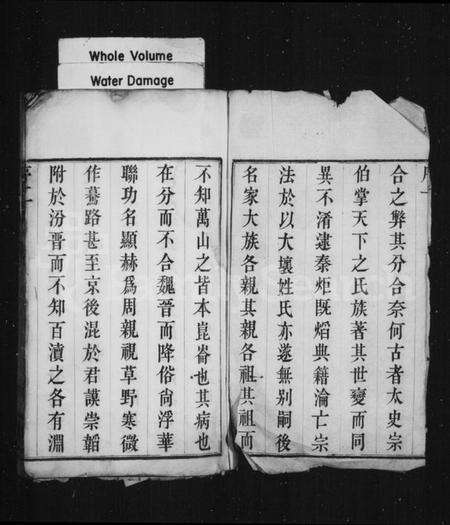 Whole Volume
Water Damage
合之弊其分合奈何古者太史宗
伯掌天下之氏族著其世變而同
異不淆逮秦炬既熖典籍淪亡宗
法於以大壞姓氏亦遂無别嗣後
名家大族各親其親各祖其祖而
不知萬山之皆本崑崙也其病也
在分而不合魏晋而降俗尚浮華
聯功名顯赫為周親視草野寒微
作驀路甚至京後混於君謨崇韜
附於汾晋而不知百瀆之各有淵